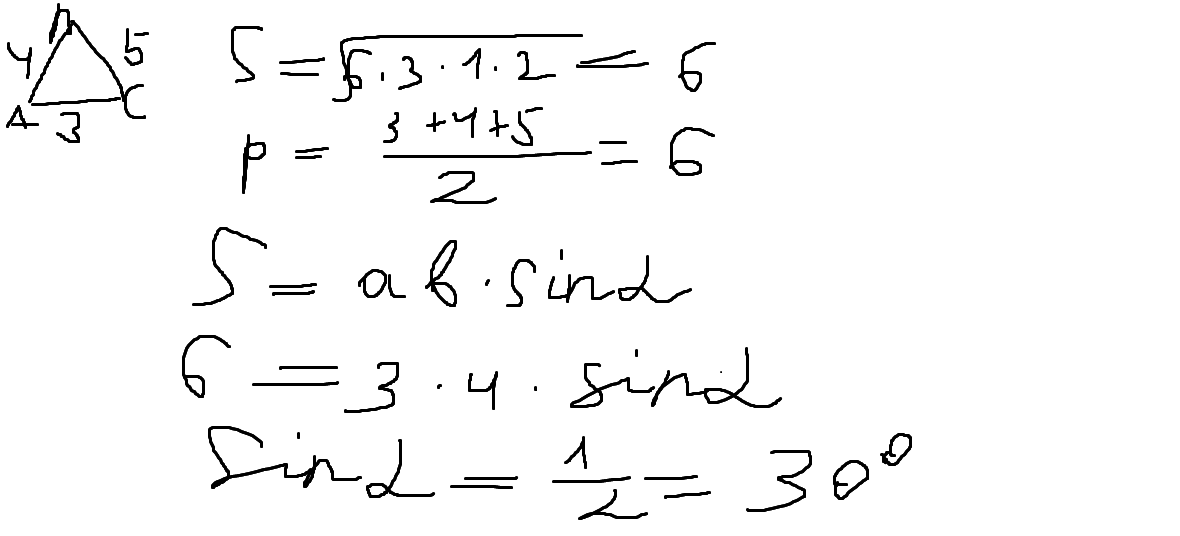 B
4 5
A 3 C
S = √6·3·1·2 = 6
p = 3+4+5/2 = 6
S = ab·sinα
6 = 3·4·sinα
Sinα = 1/2 = 30°